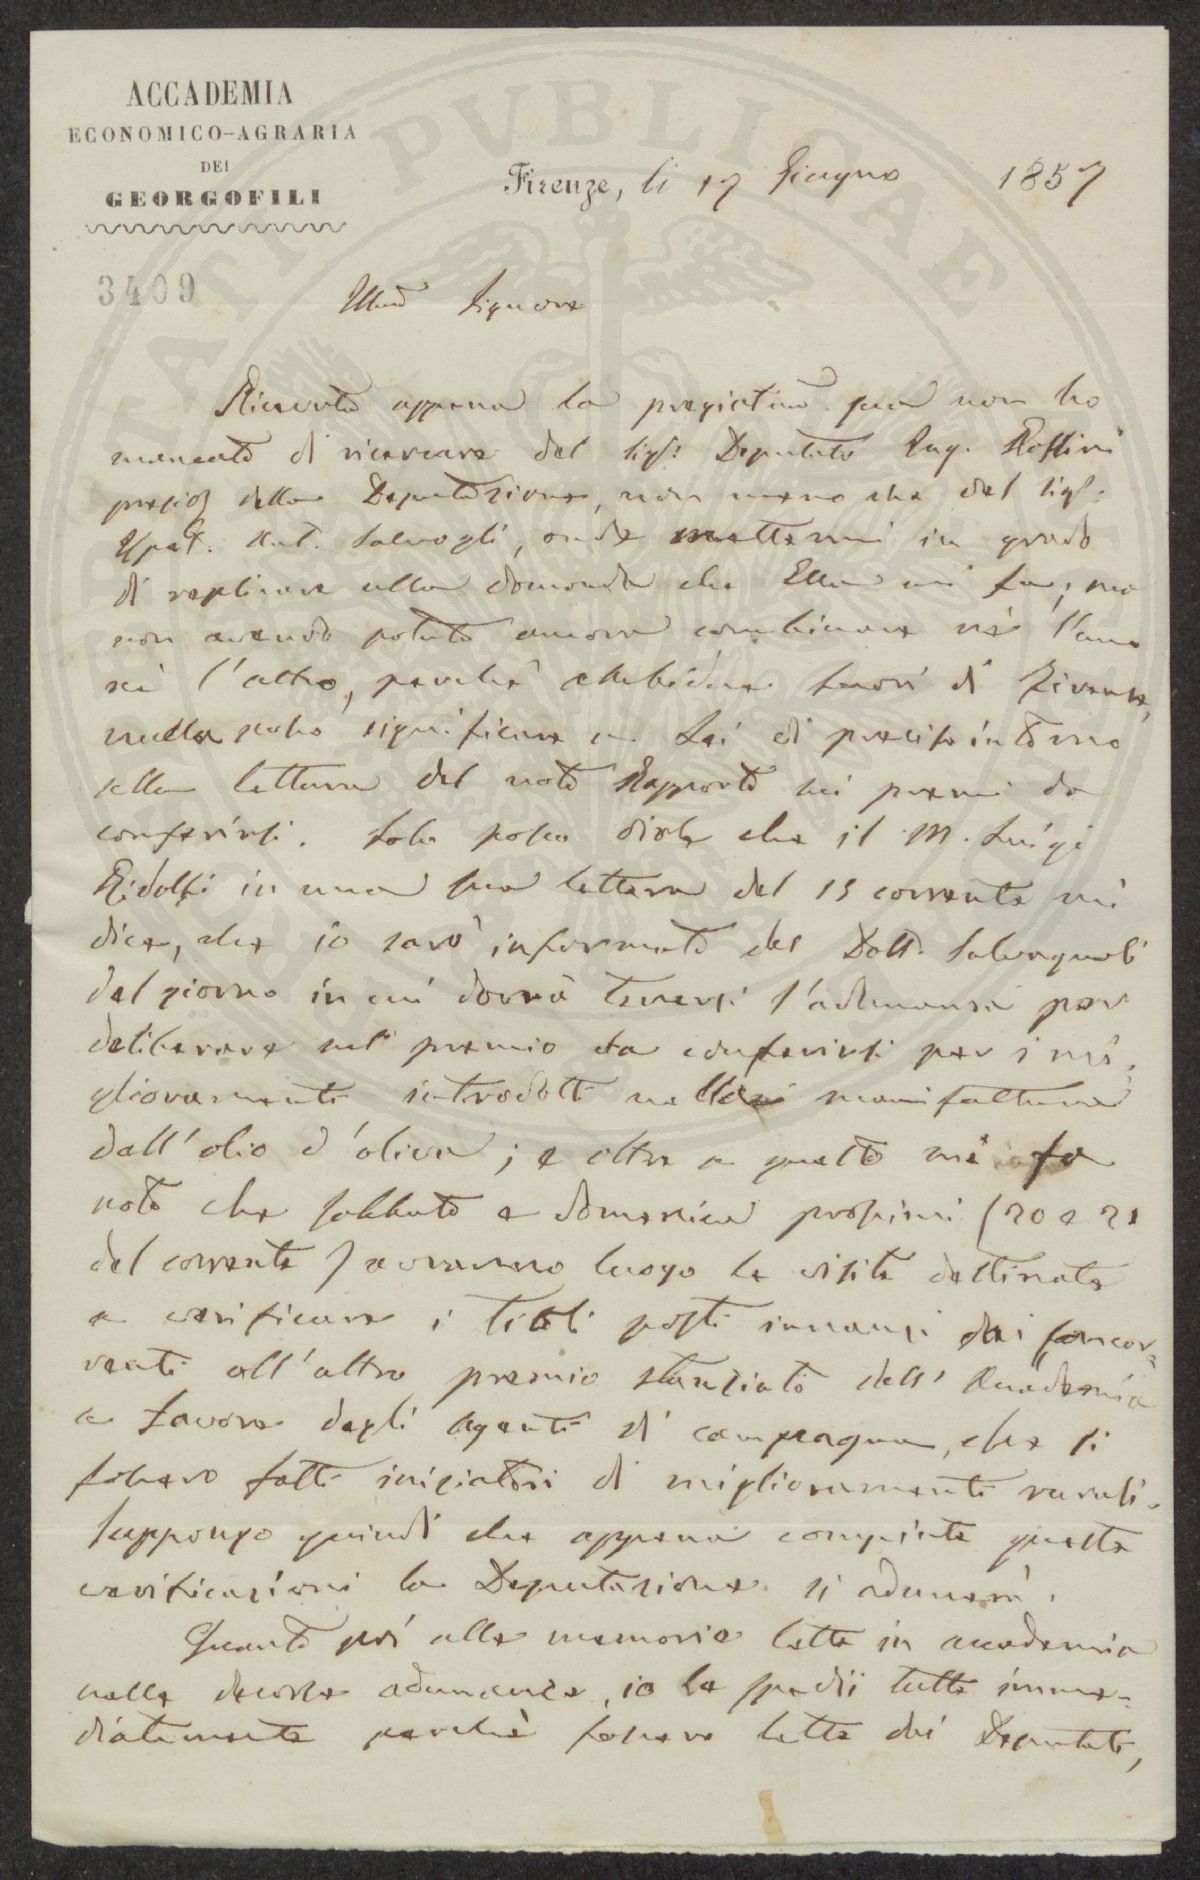 ACCADEMIA
ECONOMICO-AGRARIA
DEI
GEORGOFILI
Firenze, li 17 Giugno 1857
3409
Illmo Signore
Ricevuta appena la pregiatima sua non ho
mancato di ricercare del sigr. Deputato Ing. Rossini
presidte della Deputazione, non meno che del sigr.
Ispet. Ant. Salvagnoli, onde mettermi in grado
di replicare alla domanda che Ella mi fa; ma
non avendo potuto ancora combinare nè l'uno
nè l'altro, perchè ambidue fuori di Firenze,
nulla posso significare a Lei di preciso intorno
alla lettura del noto Rapporto sui premi da
conferirsi. Solo posso dirle che il M. Luigi
Ridolfi in una sua lettera del 15 corrente mi
dice, che io sarò informato dal Dott. Salvagnoli
del giorno in cui dovrà tenersi l'adunanza per
deliberare sul premio da conferirsi per i mi-
glioramenti introdotti nella manifattura
dell'olio d'oliva; e oltre a questo mi fa
noto che sabbato e domenica prossimi (20 e 21
del corrente) avranno luogo le visite destinate
a verificare i titoli posti innanzi dai concor=
renti all'altro premio stanziato dall'Accademia
a favore degli agenti di campagna, che si
fossero fatti iniziatori di miglioramenti rurali.
Suppongo quindi che appena compiute queste
verificazioni la Deputazione si adunerà.
Quanto poi alle memorie lette in accademia
nelle decorse adunanze, io le spedii tutte imme=
diatamente perchè fossero lette dai Deputati,
PVBLICAE